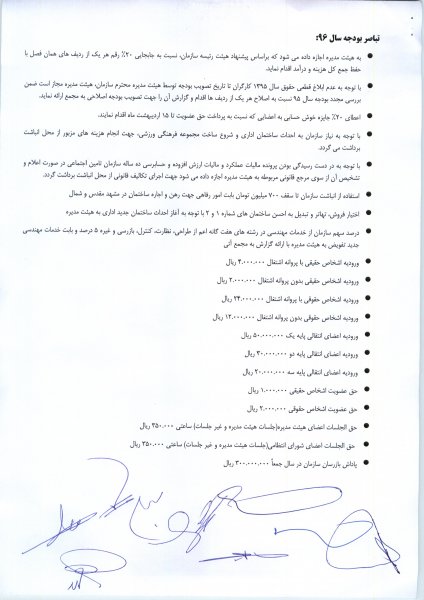 تباصر بودجه سال ۹۶:
به هیئت مدیره اجازه داده می شود که براساس پیشنهاد هیئت رئیسه سازمان، نسبت به جابجایی ۲۰٪ رقم هر یک از ردیف های همان فصل با
حفظ جمع کل هزینه و درآمد اقدام نماید.
با توجه به عدم ابلاغ قطعی حقوق سال ۱۳۹۵ کارگران تا تاریخ تصویب بودجه توسط هیئت مدیره محترم سازمان، هیئت مدیره مجاز است ضمن
بررسی مجدد بودجه سال ۹۵ نسبت به اصلاح هر یک از ردیف ها اقدام و گزارش آن را جهت تصویب بودجه اصلاحی به مجمع ارائه نماید.
اعطای ۲۰٪ جایزه خوش حسابی به اعضایی که نسبت به پرداخت حق عضویت تا ۱۵ اردیبهشت ماه اقدام نمایند.
با توجه به نیاز سازمان به احداث ساختمان اداری و شروع ساخت مجموعه فرهنگی ورزشی، جهت انجام هزینه های مزبور از محل انباشت
برداشت می گردد.
با توجه به در دست رسیدگی بودن پرونده مالیات عملکرد و مالیات ارزش افزوده و حسابرسی ده ساله سازمان تامین اجتماعی در صورت اعلام و
تشخیص آن از سوی مرجع قانونی مربوطه به هیئت مدیره اجازه داده می شود جهت اجرای تکالیف قانونی از محل انباشت برداشت گردد.
استفاده از انباشت سازمان تا سقف ۷۰۰ میلیون تومان بابت امور رفاهی جهت رهن و اجاره ساختمان در مشهد مقدس و شمال
اختیار فروش، تهاتر و تبدیل به احسن ساختمان های شماره ۱ و ۲ با توجه به آغاز احداث ساختمان جدید اداری به هیئت مدیره
درصد سهم سازمان از خدمات مهندسی در رشته های هفت گانه اعم از طراحی، نظارت، کنترل، بازرسی و غیره ۵ درصد و بابت خدمات مهندسی
جدید تفویض به هیئت مدیره با ارائه گزارش به مجمع آتی
ورودیه اشخاص حقیقی با پروانه اشتغال ۴.۰۰۰.۰۰۰ ریال
ورودیه اشخاص حقیقی بدون پروانه اشتغال ۲.۰۰۰.۰۰۰ ریال
ورودیه اشخاص حقوقی با پروانه اشتغال ۲۴.۰۰۰.۰۰۰ ریال
ورودیه اشخاص حقوقی بدون پروانه اشتغال ۱۲.۰۰۰.۰۰۰ ریال
ورودیه اعضای انتقالی پایه یک ۵۰.۰۰۰.۰۰۰ ریال
ورودیه اعضای انتقالی پایه دو ۳۰.۰۰۰.۰۰۰ ریال
ورودیه اعضای انتقالی پایه سه ۲۰.۰۰۰.۰۰۰ ریال
حق عضویت اشخاص حقیقی ۱.۰۰۰.۰۰۰ ریال
حق عضویت اشخاص حقوقی ۲.۰۰۰.۰۰۰ ریال
حق الجلسات اعضای هیئت مدیره(جلسات هیئت مدیره و غیر جلسات) ساعتی ۳۵۰.۰۰۰ ریال
حق الجلسات اعضای شورای انتظامی(جلسات هیئت مدیره و غیر جلسات) ساعتی ۳۵۰.۰۰۰ ریال
پاداش بازرسان سازمان در سال جمعاً ۳۰۰.۰۰۰.۰۰۰ ریال